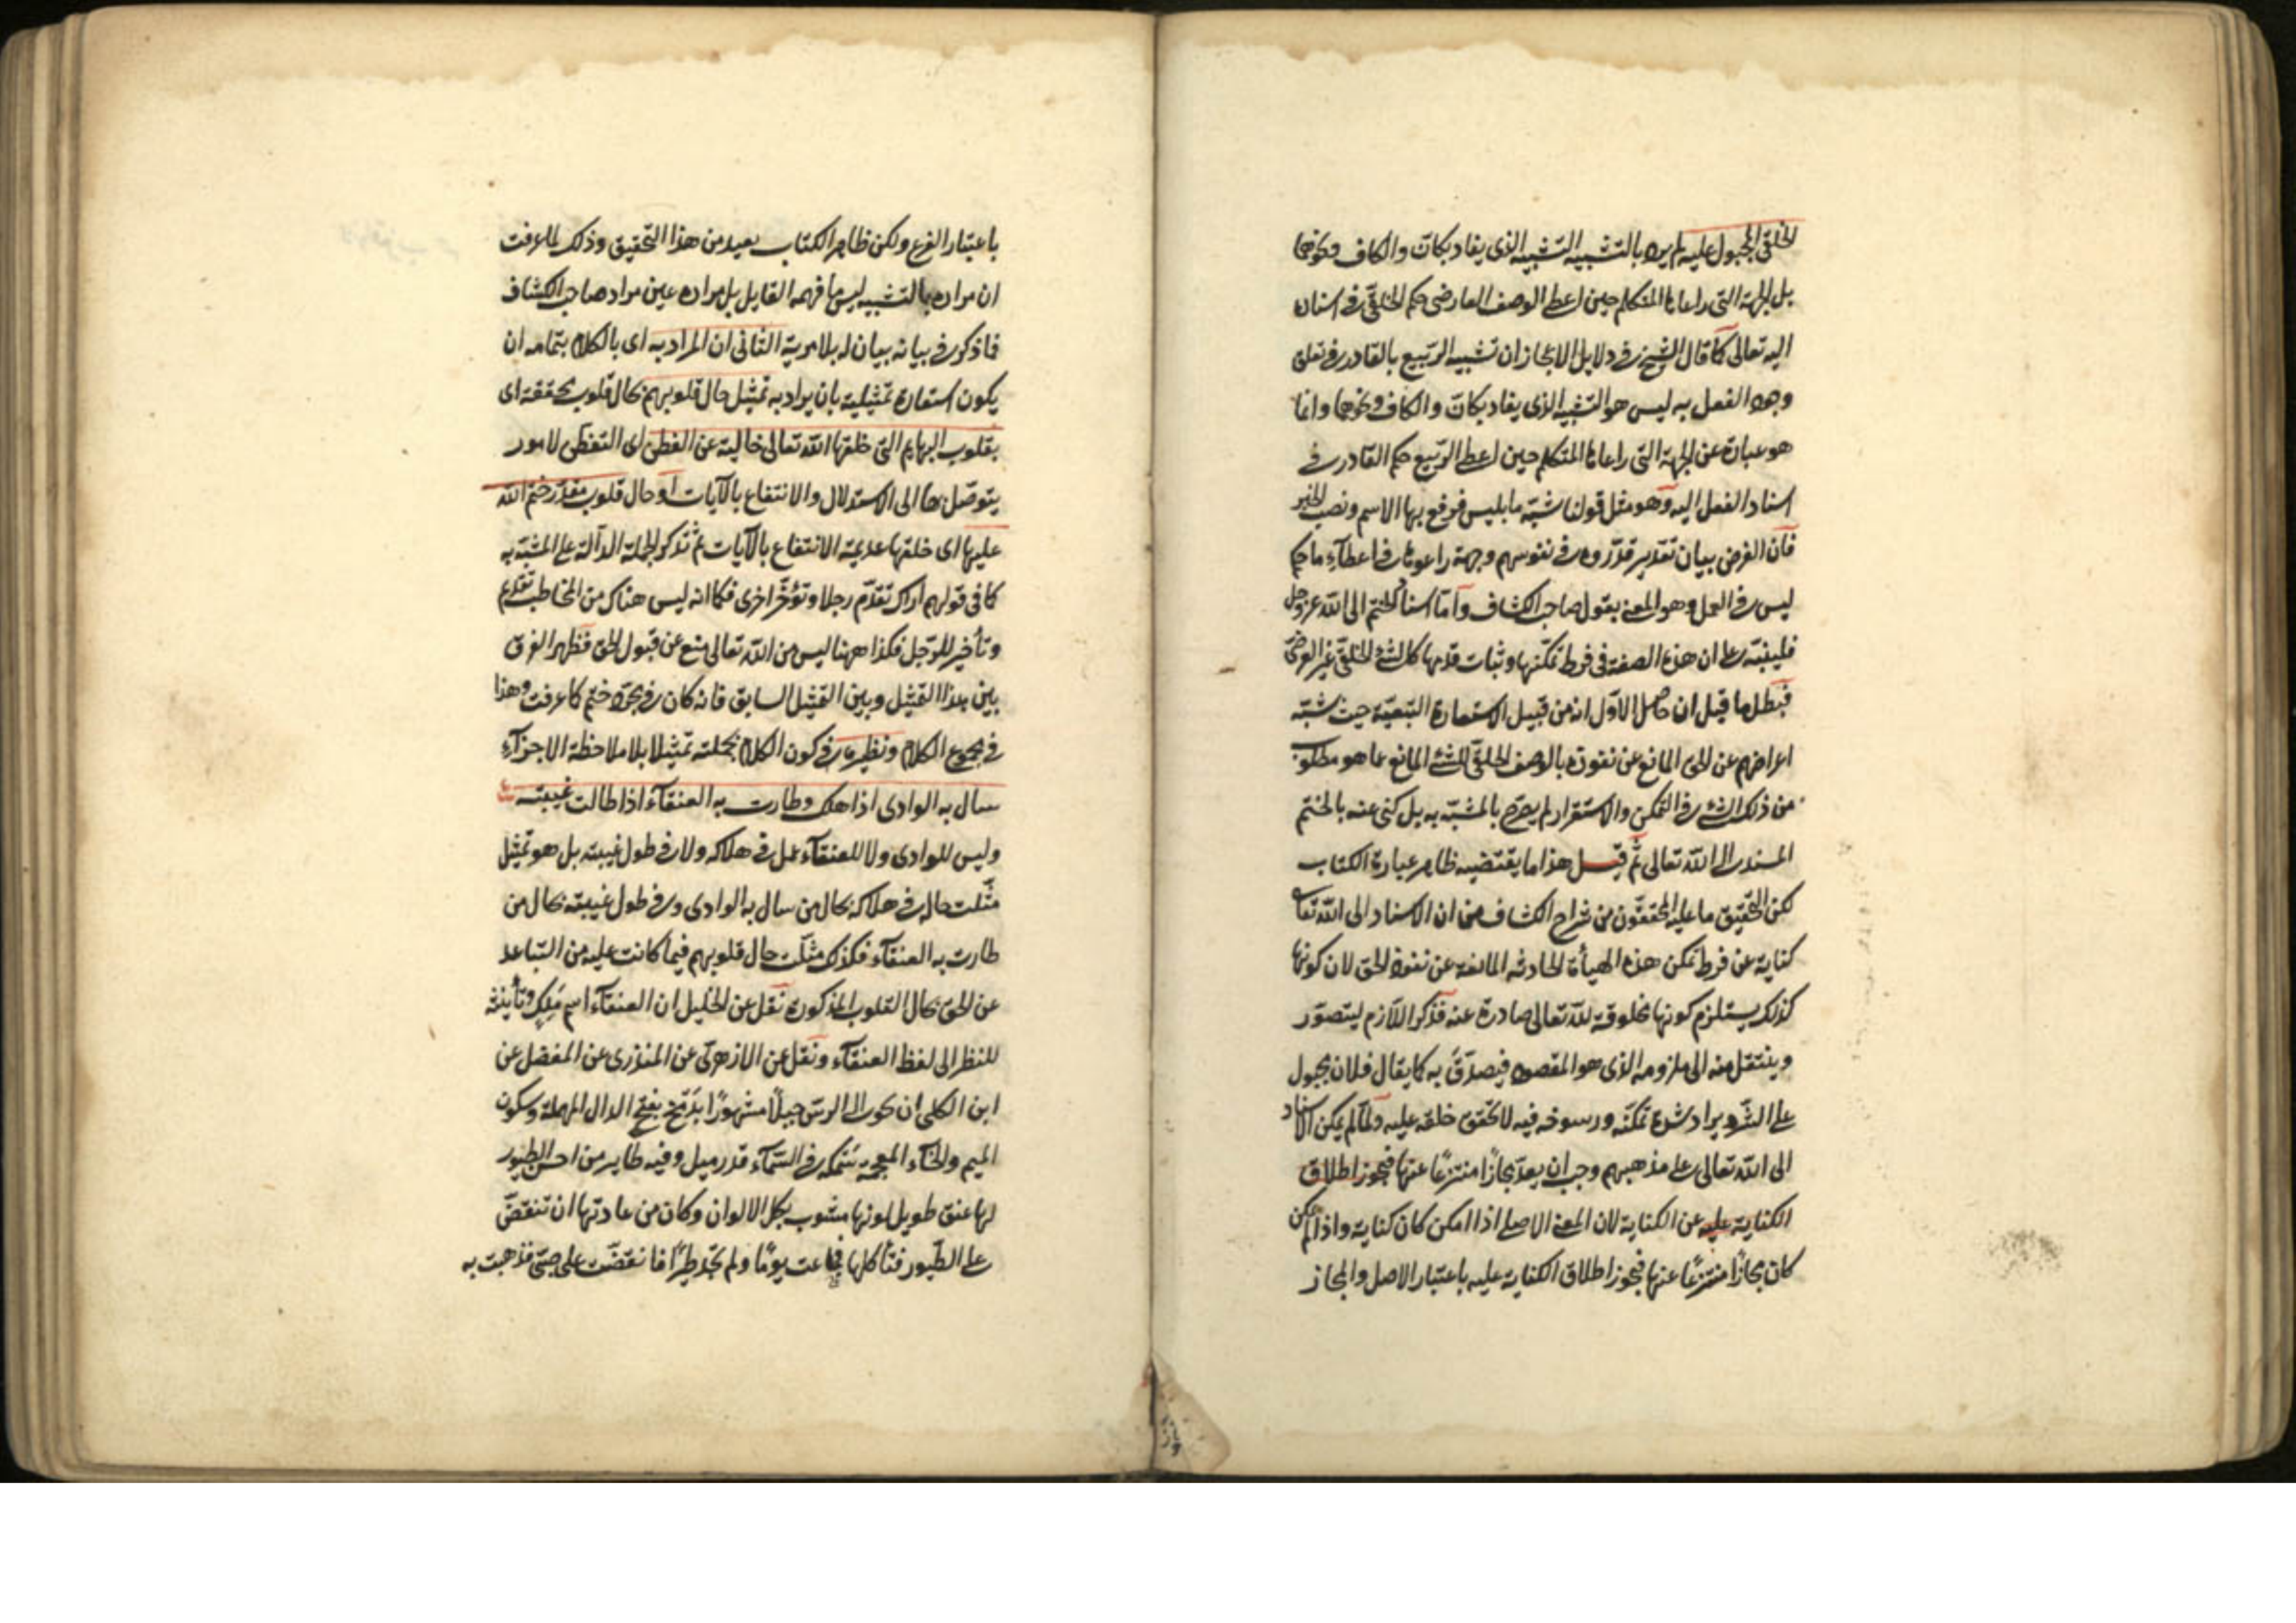 الخلقى المجبول عليه لم يرد بالتشبيه التشبيه الذى يفاد بكانّ والكاف ونحوها
بل الجهة التى راعاها المتكلم حين اعطى الوصف العارضى حكم الخلقىّ فى اسناده
اليه تعالى كما قال الشيخ فى دلايل الاعجاز ان تشبيه الربيع بالقادر فى تعلق
وجود الفعل به ليس هو التشبيه الذى يفاد بكانّ والكاف ونحوها وانما
هو عبارة عن الجهة التى راعاها المتكلم حين اعطى الربيع حكم القادر فى
اسناد الفعل اليه وهو مثل قولنا شبّه ما بليس فرفع بها الاسم ونصب الخبر
فان الغرض بيان تقدير قدّروه فى نفوسهم وجهة راعوها فى اعطآء ما حكم
ليس فى العمل وهو المعنى بقول صاحب الكشاف وامّا اسناد الختم الى الله عز وجل
فلينبّه على ان هذه الصفة فى فرط تمكّنها وثبات قدمها كالشئ الخلقىّ غير العرضىّ
فبطل ما قيل ان حاصل الاوّل انه من قبيل الاستعارة التبعيّة حيث شبّه
اعراضهم عن الحق المانع عن نفوذه بالوصف الخلقىّ للشئ المانع عما هو مطلوب
من ذلك الشئ فى التمكن والاستقرار لم يصرّح بالمشبّه به بل كنى عنه بالختم
المسند الى الله تعالى ثمّ قيل هذا ما يقتضيه ظاهر عبارة الكتاب
لكن التحقيق ما عليه المحققون من شراح الكشاف من ان الاسناد الى الله تعالى
كناية عن فرط تمكن هذه الهيأة الحادثه المانعة عن نفوذ الحق لان كونها
كذلك يستلزم كونها مخلوقة للّه تعالى صادرة عنه فذكر اللازم ليتصوّر
وينتقل منه الى ملزومه الذى هو المقصود فيصدّق به كما يقال فلان مجبول
على الشّر ويراد شدة تمكنّه ورسوخه فيه لا تحقق خلقه عليه ولما لم يكن الاسناد
الى الله تعالى على مذهبهم وجب ان يعدّ مجازًا منتزعًا عنها فيجوز اطلاق
الكناية عليه عن الكناية لان المعنى الاصلى اذا امكن كان كناية واذا لم يمكن
كان مجازًا منتزعًا عنها فيجوز اطلاق الكناية عليه باعتبار الاصل والمجاز
باعتبار الفرع ولكن ظاهر الكتاب بعيد من هذا التحقيق وذلك لما عرفت
ان مراده بالتشبيه ليس ما فهمه القايل بل مراده عين مراد صاحب الكشاف
فما ذكر فى بيانه بيان له بلا مرية الثانى ان المراد به اى بالكلام بتمامه ان
يكون استعارة تمثيلية بان يراد به تمثيل حال قلوبهم بحال قلوب محققة اى
بقلوب البهايم التى خلقها الله تعالى خالية عن الفطن اى التفطن لامور
يتوصّل بها الى الاستدلال والانتفاع بالآيات او حال قلوب مقدّر ختم الله
عليها اى خلقها عديمة الانتفاع بالآيات ثم تذكر الجملة الدآلة على المشبّه به
كما فى قولهم اراك تقدّم رجلا وتؤخّر اخرى فكما انه ليس هناك من المخاطب تقديم
وتأخير للرّجل فكذا ههنا ليس من الله تعالى منع عن قبول الحق فظهر الفرق
بين هذا التمثيل وبين التمثيل السابق فانه كان فى مجرّد ختم كما عرفت وهذا
فى مجموع الكلام ونظيره فى كون الكلام بجملته تمثيلا بلا ملاحظة الاجزآء
سال به الوادى اذا هلك وطارت به العنقآء اذا طالت غيبته
وليس للوادى ولا للعنقآء عمل فى هلاكه ولا فى طول غيبته بل هو تمثيل
مثّلت حاله فى هلاكه بحال من سال به الوادى وفى طول غيبته بحال من
طارت به العنقآء فكذلك مثلت حال قلوبهم فيما كانت عليه من التباعد
عن الحق بحال القلوب المذكورة نقل عن الخليل ان العنقآء اسم مَلِكٍ وتأنيثه
للنظر الى لفظ العنقآء ونقل عن الازهرىّ عن المنذرى عن المفضل عن
ابن الكلبى ان حوالى الرسّ جبلًا مشهورًا بدَمْخ بفتح الدال المهملة وسكون
الميم والخآء المعجمة سَمْكه فى السّمآء قدر ميل وفيه طاير من احسن الطيور
لها عنق طويل لونها مشوب بكل الالوان وكان من عادتها ان تنقضّ
على الطّيور فتأكلها فجاعت يومًا ولم تجد طيرًا فانقضّت على صبىّ فذهبت به